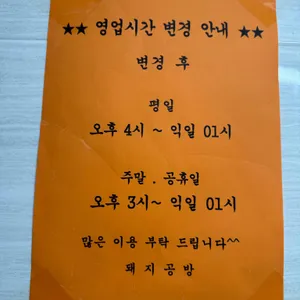 ★★ 영업시간 변경 안내 ★★
변경 후
평일
오후 4시 ~ 익일 01시
주말 . 공휴일
오후 3시~ 익일 01시
많은 이용 부탁 드립니다^^
돼지공방